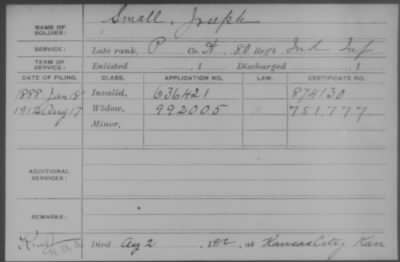 NAME OF SOLDIER: Small, Joseph
SERVICE: Late rank, P Co. H, 80 Reg't Ind Inf
TERM OF SERVICE: Enlisted , 1 Discharged , 1
DATE OF FILING. CLASS. APPLICATION NO. LAW. CERTIFICATE NO.
1888 Jan 18 Invalid, 636421 874130
1912 Aug 17 Widow, 992005 751.777
Minor,
ADDITIONAL SERVICES:
REMARKS:
Died Aug 2, 1912, at Kansas City Kan